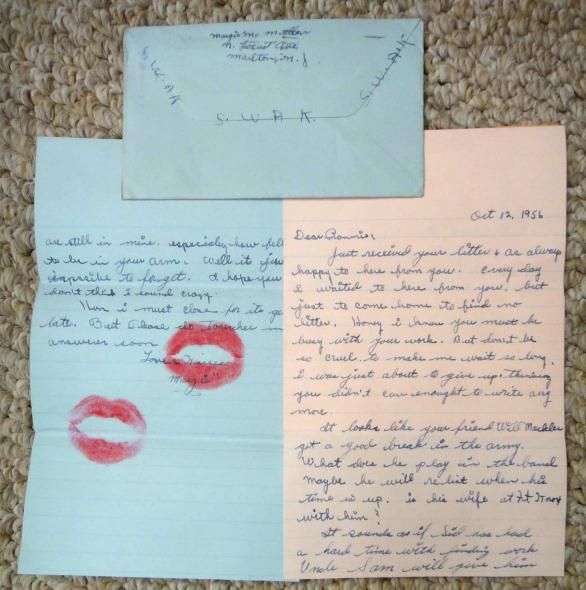 Margie Mc
N. Locust Ave
Marlton, N.J.
S. W. A. K.
S. W. A. K.
S. W. A. K.
are still in mine. especialy how
to be in your arms. Well it
impossible to forget. I hope you
don't think I sound crazy.
Hon i must close for its
late. But Please do
answer soon
Love &
"Margie"
Oct 12, 1956
Dear Ronnie,
Just received your litter & as always
happy to here from you. Every day
i waited to here from you, but
just to come home to find no
litter. Honey i know you must be
busy with your work. But dont be
so cruel to make me wait so long.
i was just about to give up, thinking
you didn't care enought to write any
more.
It looks like your friend Will
got a good break in the army.
What does he play in the band
maybe he will relist when his
time is up. is his wife at Ft Knox
with him?
It sounds as if Sid has had
a hard time with finding work
Uncle Sam will give him